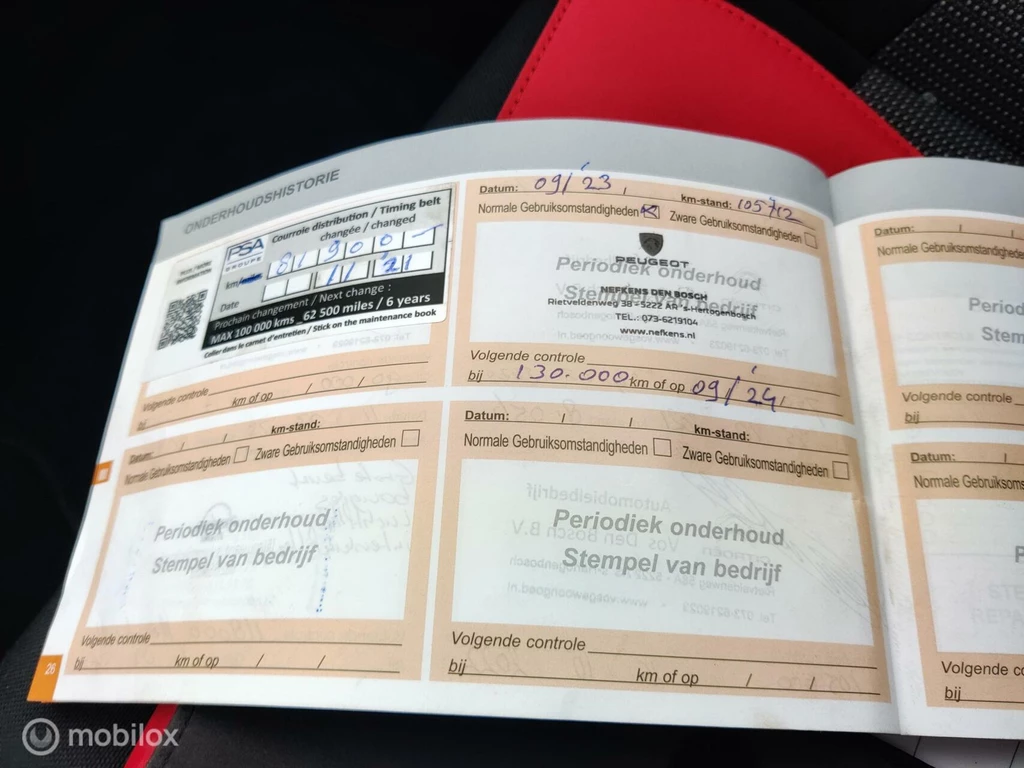 ONDERHOUDSHISTORIE
PSA
GROUPE
Courroie distribution / Timing belt
changée / changed
km/miles 81 900 -
Date 11/21
Prochain changement / Next change :
MAX 100 000 kms_ 62 500 miles / 6 years
Coller dans le carnet d'entretien / Stick on the maintenance book
Volgende controle
bij km of op / /
Datum: 09/'23 km-stand: 105712
Normale Gebruiksomstandigheden Zware Gebruiksomstandigheden
PEUGEOT
Periodiek onderhoud
Stempel van bedrijf
NEFKENS DEN BOSCH
Rietveldenweg 38 - 5222 AR 's-Hertogenbosch
TEL.: 073-6219104
www.nefkens.nl
Volgende controle
bij 130.000 km of op 09/'24
Datum: / / km-stand:
Normale Gebruiksomstandigheden Zware Gebruiksomstandigheden
Periodiek onderhoud
Stempel van bedrijf
Volgende controle
bij km of op / /
26
Datum: / / km-stand:
Normale Gebruiksomstandigheden Zware Gebruiksomstandigheden
Periodiek onderhoud
Stempel van bedrijf
Volgende controle
bij km of op / /
Datum: / /
Normale Gebruiksomstandigheden
Period
Stem
Volgende controle
bij
Datum: /
Normale Gebruiksoms
Volgende co
bij
mobilox